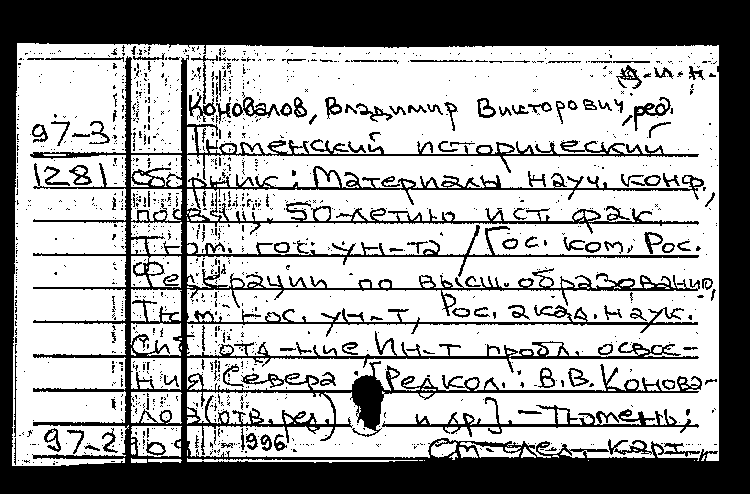 Д-И-Н-
Коновалов, Владимир Викторович, ред.
97-3 Тюменский исторический
1281 сборник: Материалы науч. конф.,
посвящ. 50-летию ист. фак.
Тюм. гос. ун-та / Гос. ком. Рос.
Федерации по высш. образованию,
Тюм. гос. ун-т, Рос. акад. наук.
Сиб отд-ние, Ин-т пробл. освое-
ния Севера; [Редкол.: В.В. Конова-
лов (отв. ред.) и др.]. - Тюмень;
97-2 996. См. след. карт.